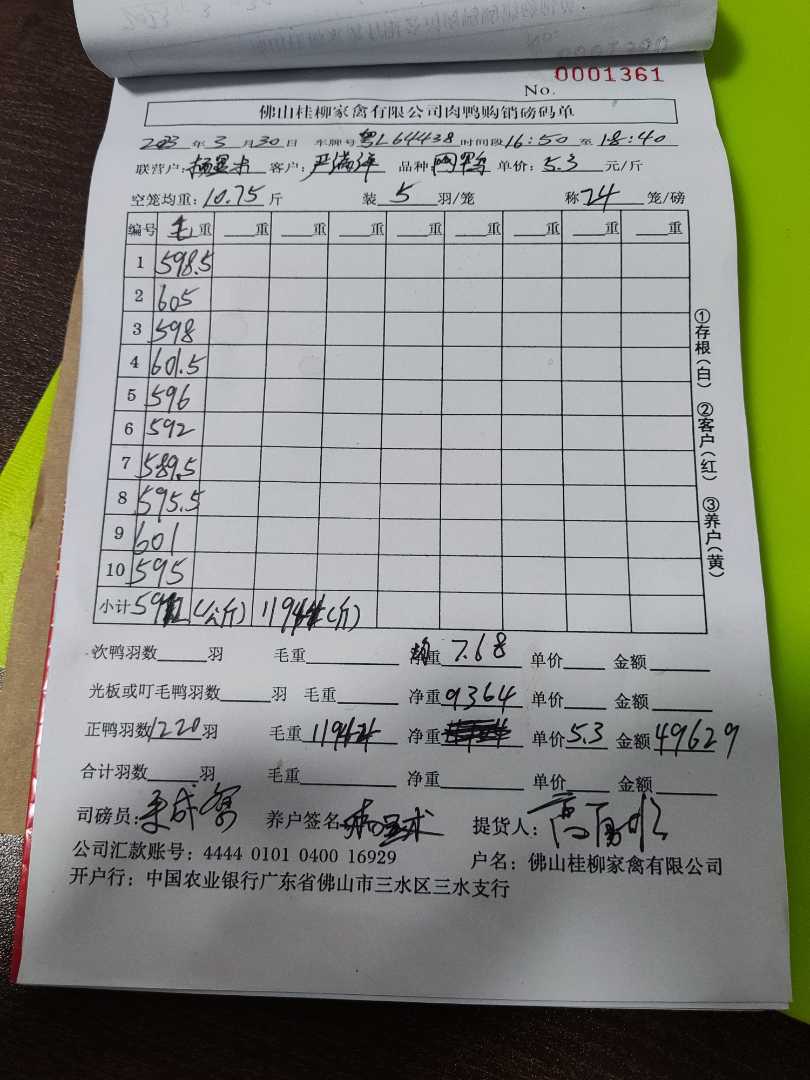 0001361
No.
佛山桂柳家禽有限公司肉鸭购销磅码单
2023年3月30日 车牌号粤L64438 时间段16:50至18:40
联营户: 客户:严满洋 品种 单价:5.3元/斤
空笼均重:10.75斤 装5羽/笼 称24笼/磅
编号 毛重 重 重 重 重 重 重 重 重
1 598.5
2 605
3 598
4 601.5
5 596
6 592
7 589.5
8 595.5
9 601
10 595
小计 (公斤) (斤)
次鸭羽数 羽 毛重 均重7.68 单价 金额
光板或叮毛鸭羽数 羽 毛重 净重9364 单价 金额
正鸭羽数1220羽 毛重 净重 单价5.3 金额49629
合计羽数 羽 毛重 净重 单价 金额
司磅员: 养户签名 提货人:
公司汇款账号:4444 0101 0400 16929 户名:佛山桂柳家禽有限公司
开户行:中国农业银行广东省佛山市三水区三水支行
①存根(白) ②客户(红) ③养户(黄)